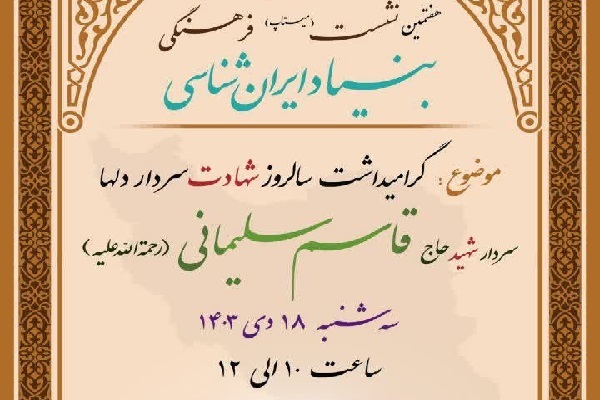 هفتمین نشست (میتاپ) فرهنگی
بنیاد ایران شناسی
موضوع: گرامیداشت سالروز شهادت سردار دلها
سردار شهید حاج قاسم سلیمانی (رحمة الله علیه)
سه شنبه ۱۸ دی ۱۴۰۳
ساعت ۱۰ الی ۱۲